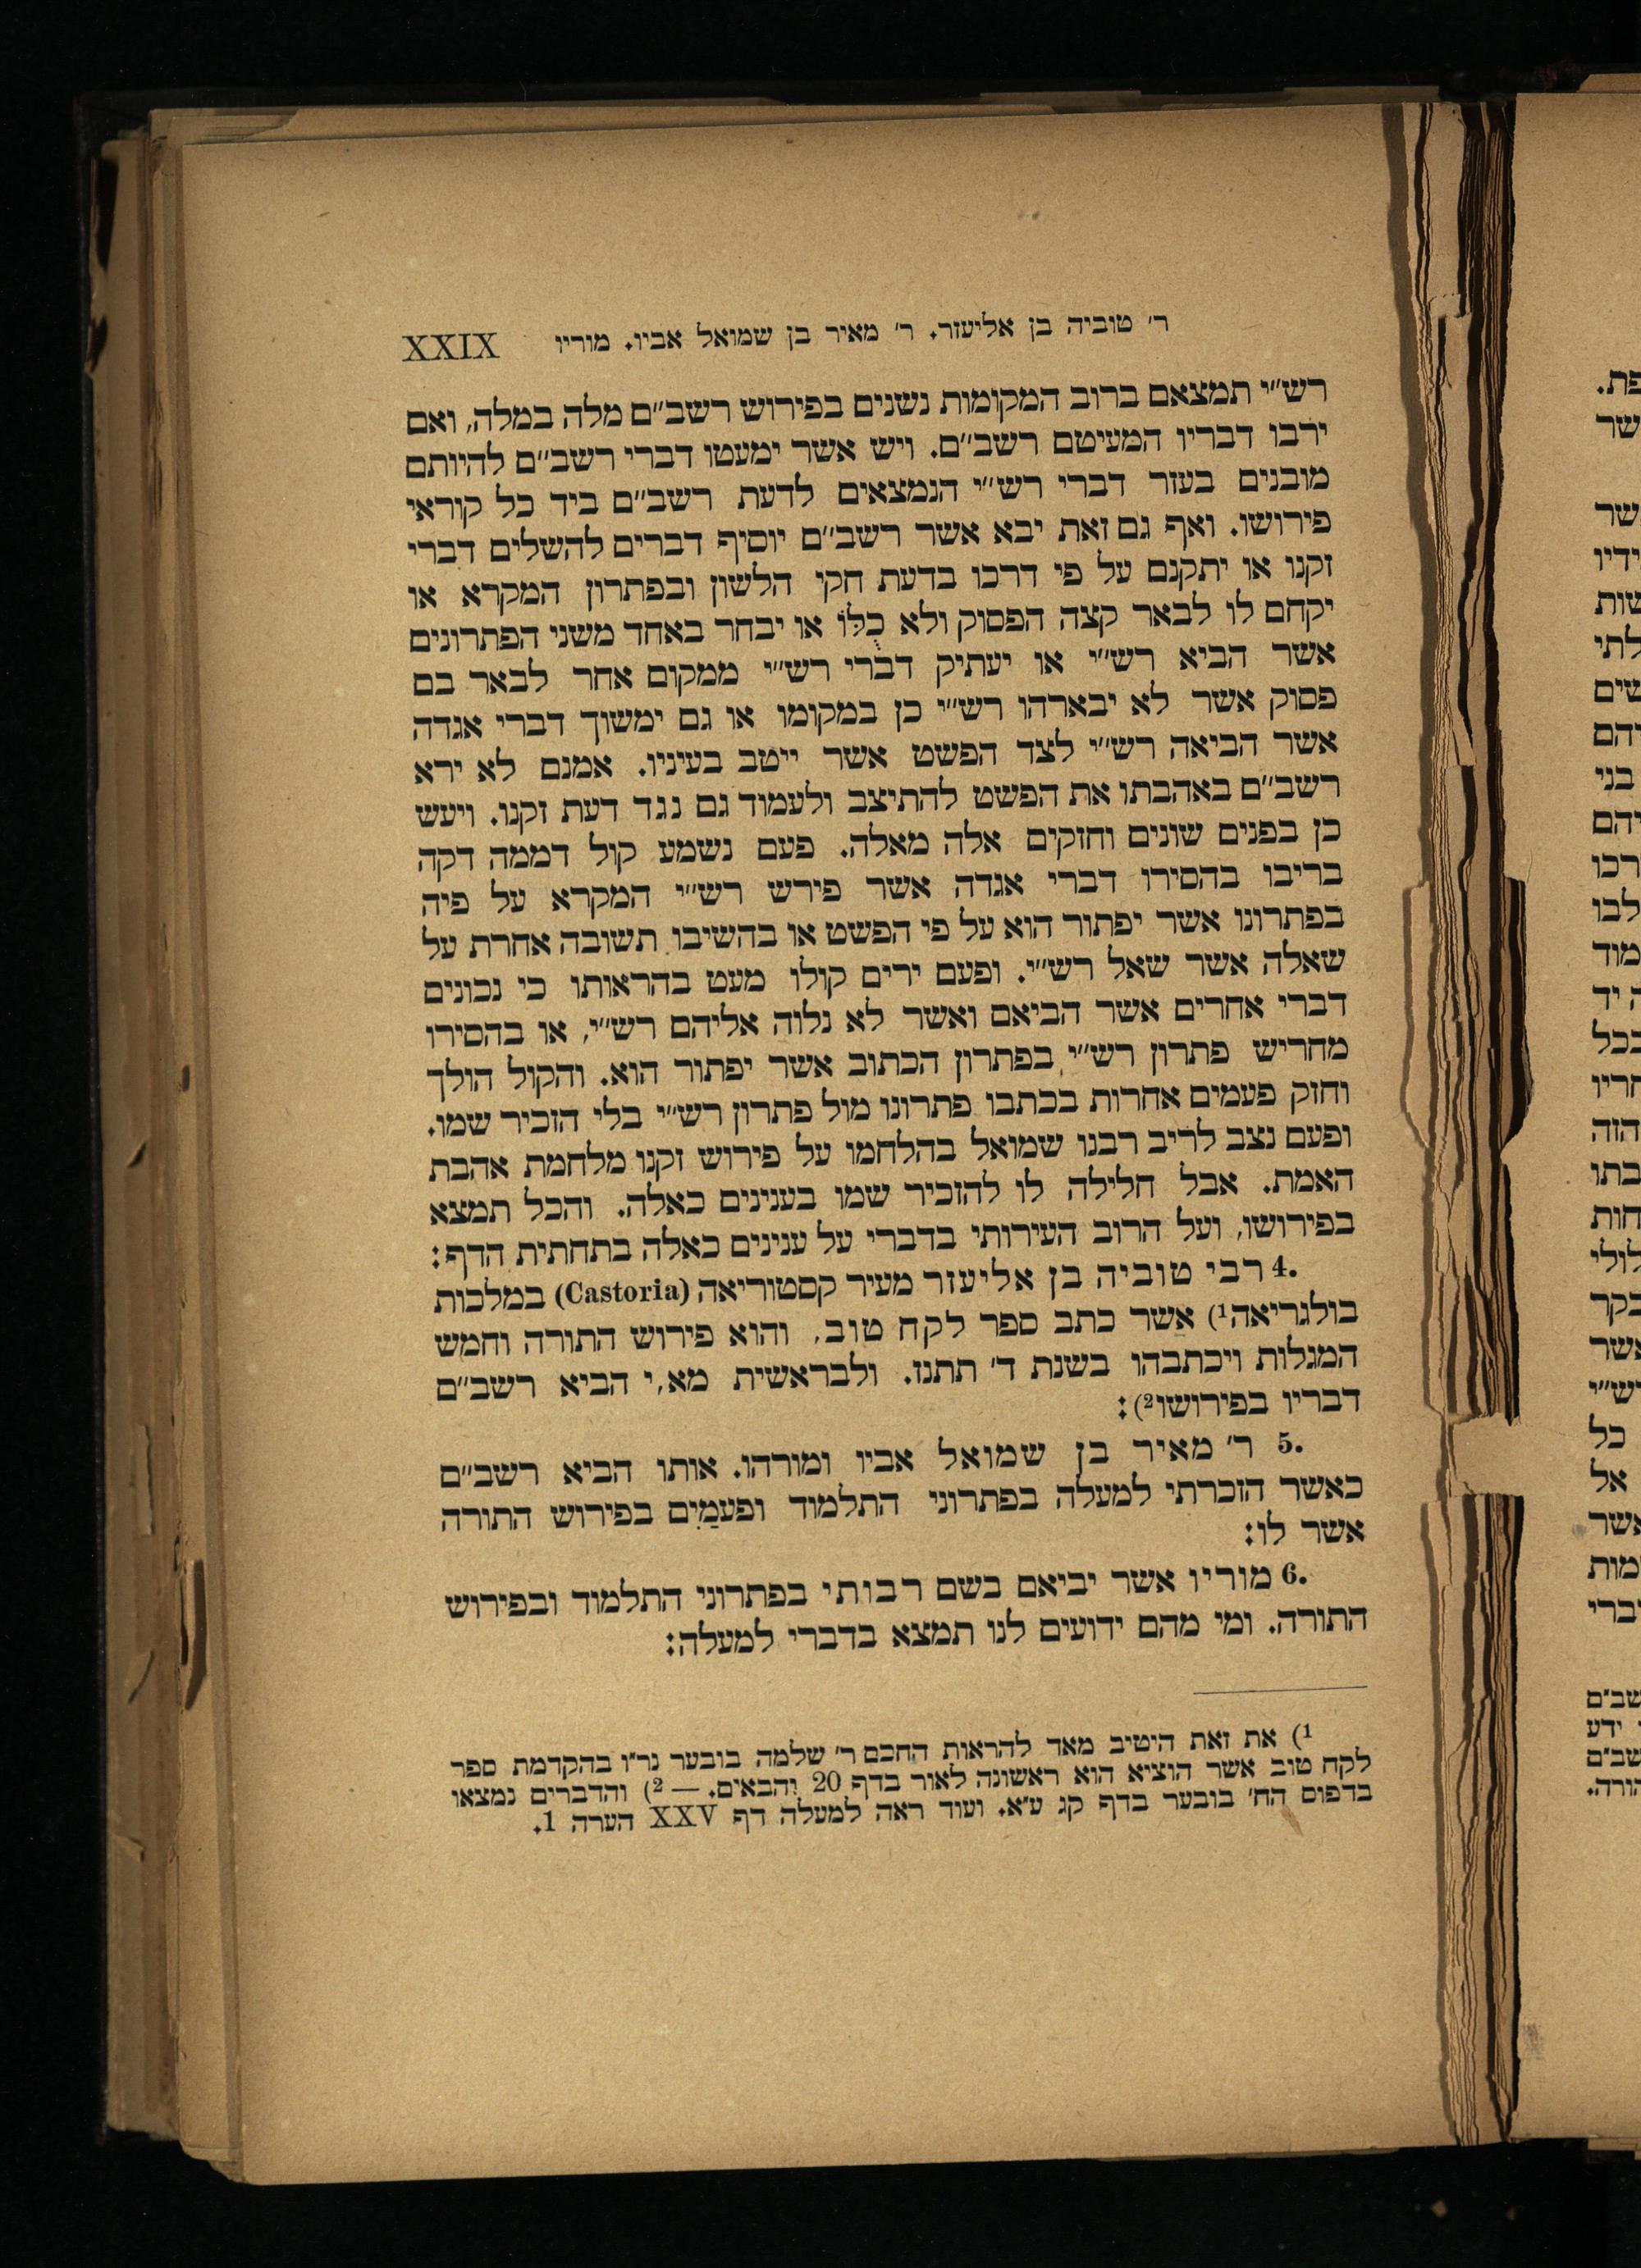 ר׳ טוביה בן אליעזר. ר׳ מאיר בן שמואל אביו. מוריו XXIX
רש״י תמצאם ברוב המקומות נשנים בפירוש רשב״ם מלה במלה, ואם
ירבו דבריו המעיטם רשב״ם. ויש אשר ימעטו דברי רשב״ם להיותם
מובנים בעזר דברי רש״י הנמצאים לדעת רשב״ם ביד כל קוראי
פירושו. ואף גם זאת יבא אשר רשב״ם יוסיף דברים להשלים דברי
זקנו או יתקנם על פי דרכו בדעת חקי הלשון ובפתרון המקרא או
יקחם לו לבאר קצה הפסוק ולא כֻלּוֹ או יבחר באחד משני הפתרונים
אשר הביא רש״י או יעתיק דברי רש״י ממקום אחר לבאר בם
פסוק אשר לא יבארהו רש״י כן במקומו או גם ימשוך דברי אגדה
אשר הביאה רש״י לצד הפשט אשר ייטב בעיניו. אמנם לא ירא
רשב״ם באהבתו את הפשט להתיצב ולעמוד גם נגד דעת זקנו. ויעש
כן בפנים שונים וחזקים אלה מאלה. פעם נשמע קול דממה דקה
בריבו בהסירו דברי אגדה אשר פירש רש״י המקרא על פיה
בפתרונו אשר יפתור הוא על פי הפשט או בהשיבו תשובה אחרת על
שאלה אשר שאל רש״י. ופעם ירים קולו מעט בהראותו כי נכונים
דברי אחרים אשר הביאם ואשר לא נלוה אליהם רש״י, או בהסירו
מחריש פתרון רש״י בפתרון הכתוב אשר יפתור הוא. והקול הולך
וחזק פעמים אחרות בכתבו פתרונו מול פתרון רש״י בלי הזכיר שמו.
ופעם נצב לריב רבנו שמואל בהלחמו על פירוש זקנו מלחמת אהבת
האמת. אבל חלילה לו להזכיר שמו בענינים כאלה. והכל תמצא
בפירושו, ועל הרוב העירותי בדברי על ענינים כאלה בתחתית הדף:
4. רבי טוביה בן אליעזר מעיר קסטוריאה (Castoria) במלכות
בולגריאה¹) אשר כתב ספר לקח טוב, והוא פירוש התורה וחמש
המגלות ויכתבהו בשנת ד׳ תתנז. ולבראשית מא,י הביא רשב״ם
דבריו בפירושו²):
5. ר׳ מאיר בן שמואל אביו ומורהו. אותו הביא רשב״ם
כאשר הזכרתי למעלה בפתרוני התלמוד ופעמַיִם בפירוש התורה
אשר לו:
6. מוריו אשר יביאם בשם רבותי בפתרוני התלמוד ובפירוש
התורה. ומי מהם ידועים לנו תמצא בדברי למעלה:
¹) את זאת היטיב מאד להראות החכם ר׳ שלמה בובער נר״ו בהקדמת ספר
לקח טוב אשר הוציא הוא ראשונה לאור בדף 20 והבאים. — ²) והדברים נמצאו
בדפוס הח׳ בובער בדף קג ע״א. ועוד ראה למעלה דף XXV הערה 1.